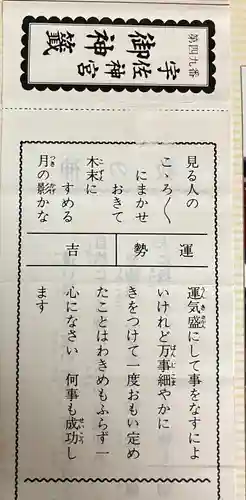 第四九番
宇佐神宮
御神籤
見る人の
こゝろ〳〵
にまかせ
おきて
木末に
こずえ
すめる
月の影かな
つき
かげ
運勢
吉
運気盛にして事をなすによ
うんきさかん
いけれど万事細やかに
ばんじこま
きをつけて一度おもい定め
たことはわきめもふらず一
心になさい 何事も成功し
せいこう
ます